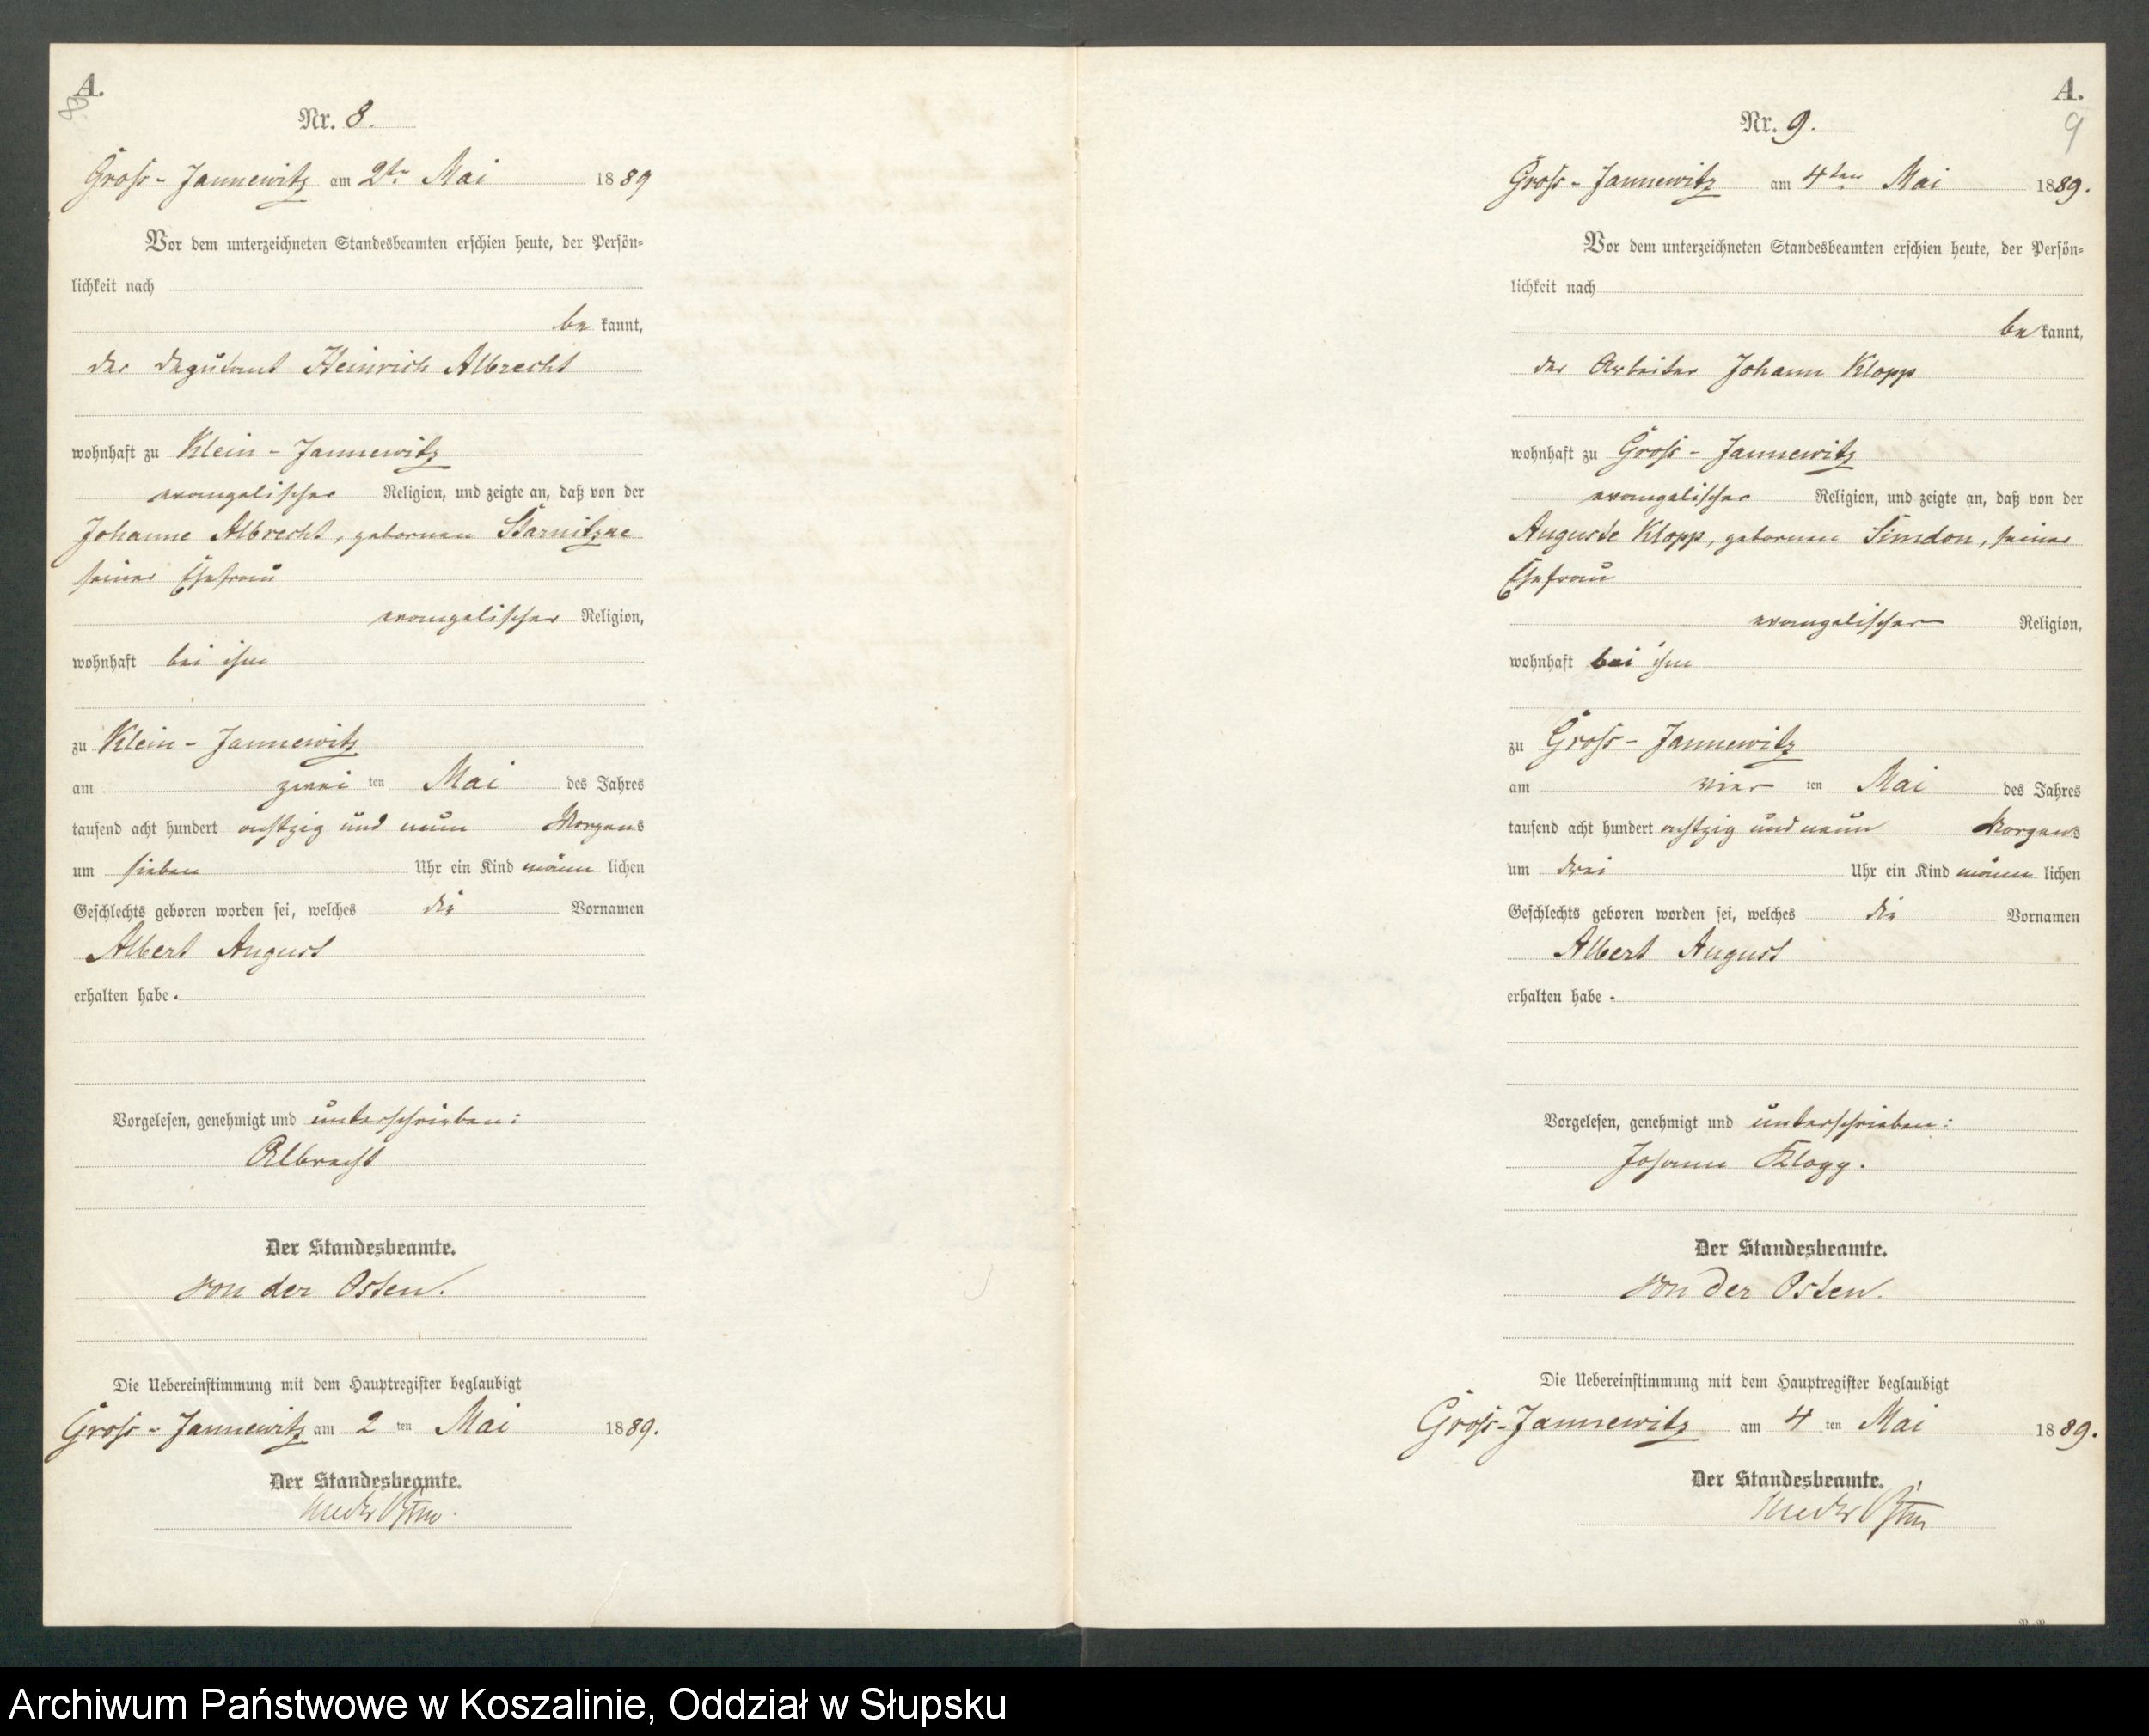 A.
8.
Nr. 8.
Gross-Jannewitz am 2ten Mai 1889
Vor dem unterzeichneten Standesbeamten erschien heute, der Persön=
lichkeit nach
be kannt,
der Deputant Heinrich Albrecht
wohnhaft zu Klein-Jannewitz
evangelischer Religion, und zeigte an, daß von der
Johanne Albrecht, gebornen
seiner Ehefrau
evangelischer Religion,
wohnhaft bei ihm
zu Klein-Jannewitz
am zwei ten Mai des Jahres
tausend acht hundert achtzig und neun Morgens
um sieben Uhr ein Kind männ lichen
Geschlechts geboren worden sei, welches die Vornamen
Albert August
erhalten habe.
Vorgelesen, genehmigt und unterschrieben:
Albrecht
Der Standesbeamte.
von der Osten.
Die Uebereinstimmung mit dem Hauptregister beglaubigt
Gross-Jannewitz am 2 ten Mai 1889.
Der Standesbeamte.
von der Osten.
A.
9
Nr. 9.
Gross-Jannewitz am 4ten Mai 1889.
Vor dem unterzeichneten Standesbeamten erschien heute, der Persön=
lichkeit nach
be kannt,
der Arbeiter Johann Klopp
wohnhaft zu Gross-Jannewitz
evangelischer Religion, und zeigte an, daß von der
Auguste Klopp, gebornen Simdon, seiner
Ehefrau
evangelischer Religion,
wohnhaft bei ihm
zu Gross-Jannewitz
am vier ten Mai des Jahres
tausend acht hundert achtzig und neun Morgens
um drei Uhr ein Kind männ lichen
Geschlechts geboren worden sei, welches die Vornamen
Albert August
erhalten habe.
Vorgelesen, genehmigt und unterschrieben:
Johann Klopp.
Der Standesbeamte.
von der Osten.
Die Uebereinstimmung mit dem Hauptregister beglaubigt
Gross-Jannewitz am 4 ten Mai 1889.
Der Standesbeamte.
von der Osten
Archiwum Państwowe w Koszalinie, Oddział w Słupsku